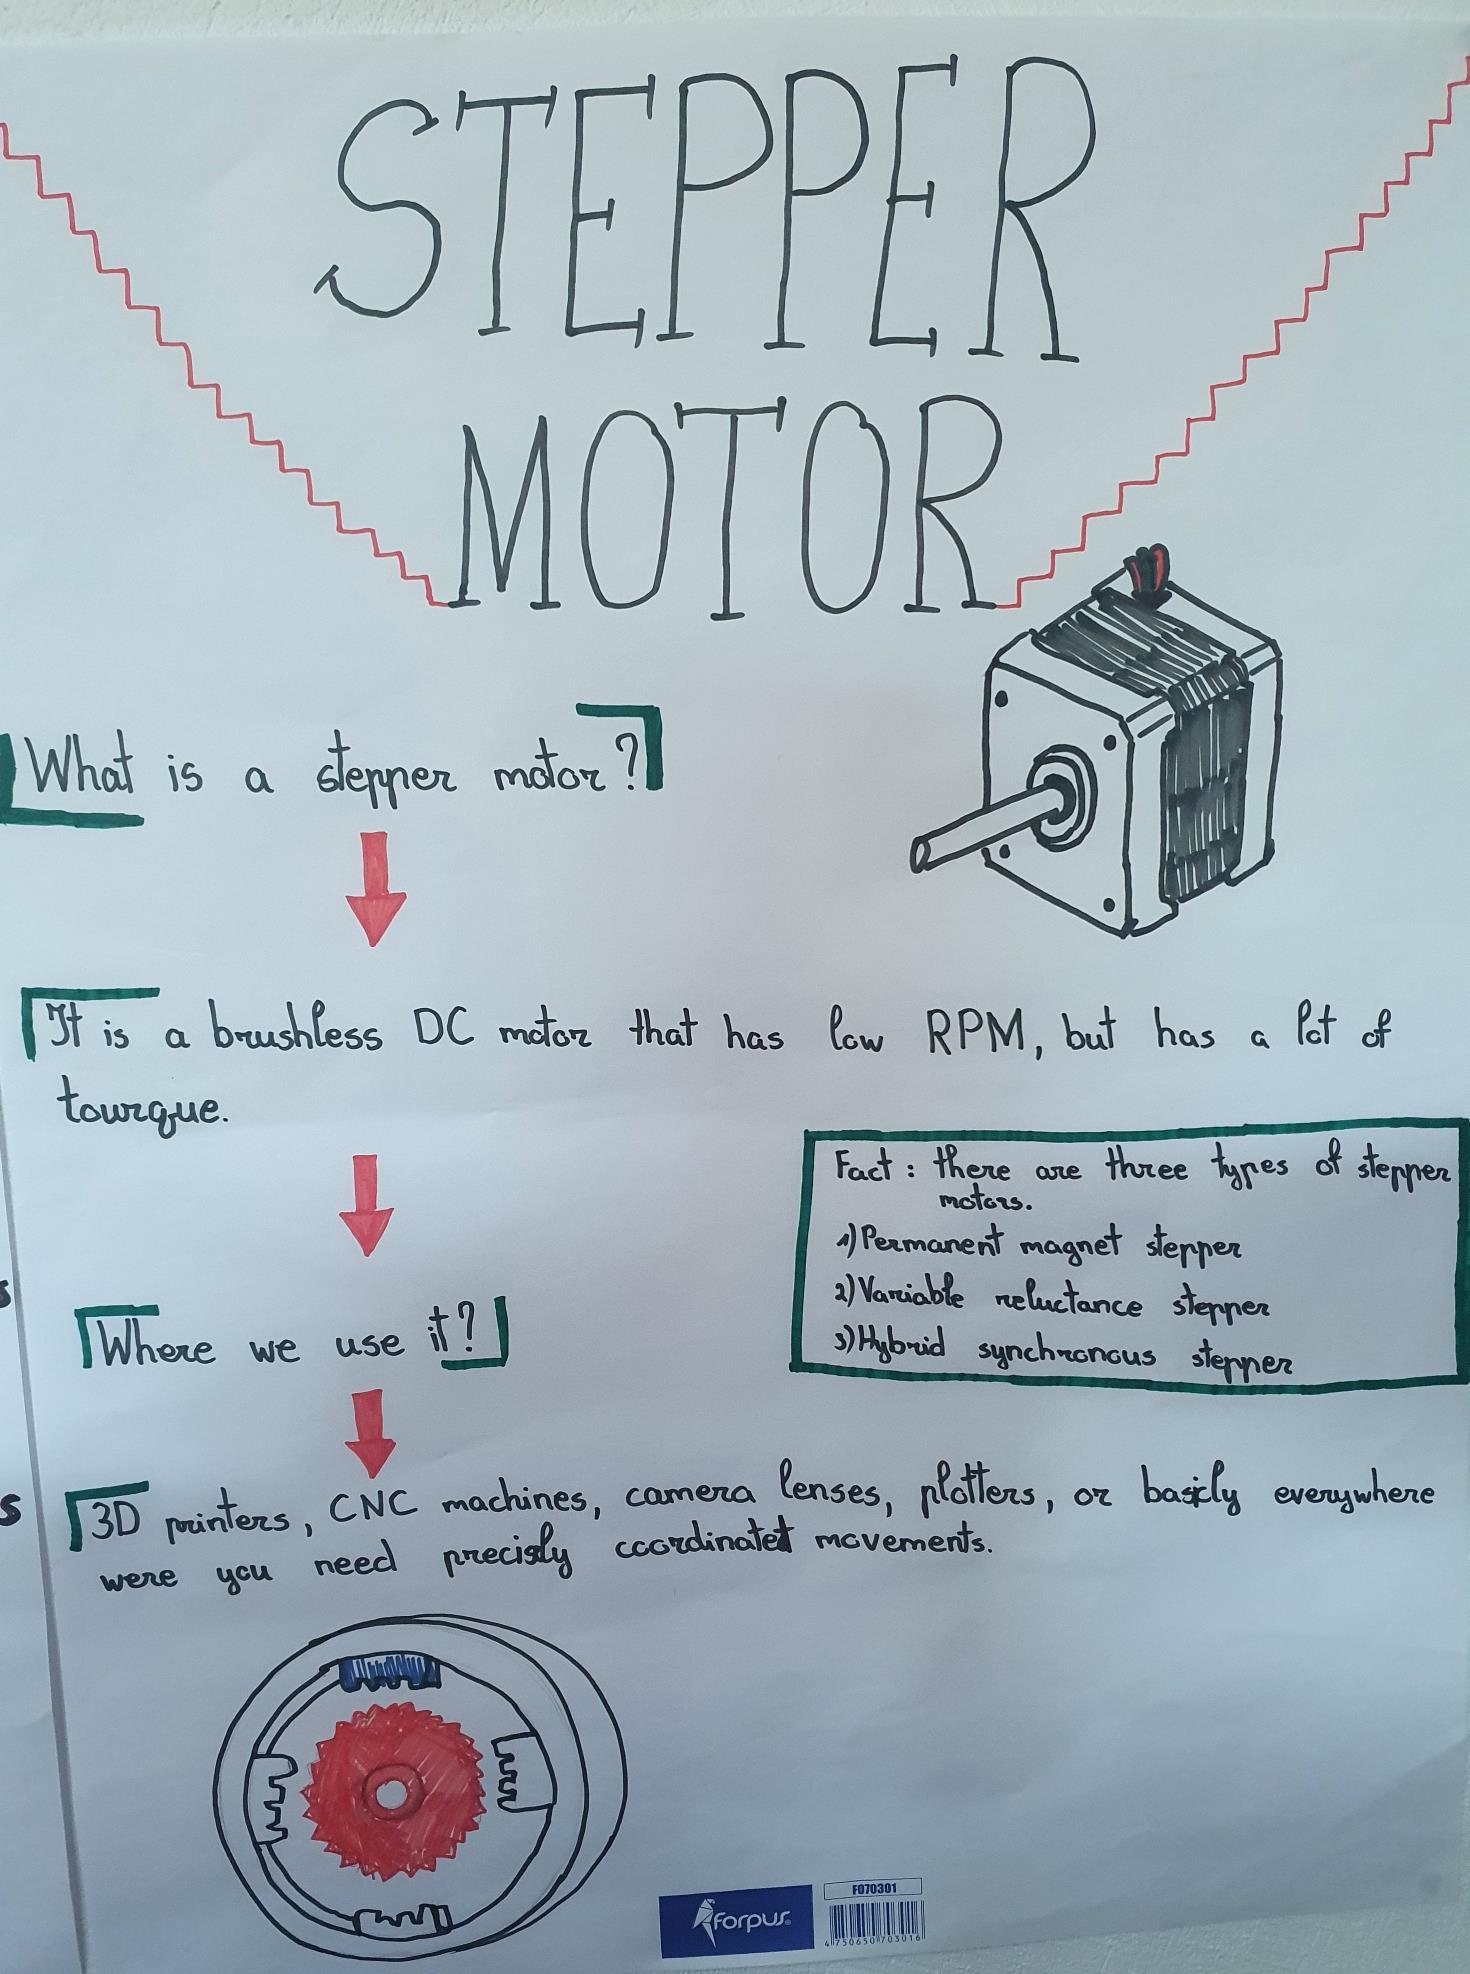 STEPPER
MOTOR
What is a stepper motor?
It is a brushless DC motor that has low RPM, but has a lot of
tourque.
Fact: there are three types of stepper
motors.
1) Permanent magnet stepper
2) Variable reluctance stepper
3) Hybrid synchronous stepper
Where we use it?
3D printers, CNC machines, camera lenses, plotters, or basicly everywhere
were you need precisly coordinated movements.
s
s
forpus
F070301
4750650703016